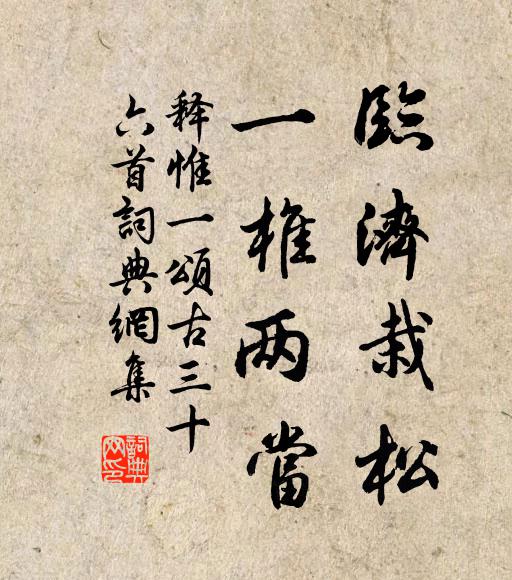 臨濟栽松
一榷两當
释惟一頌古三十
六首詞典網集
詞典网印